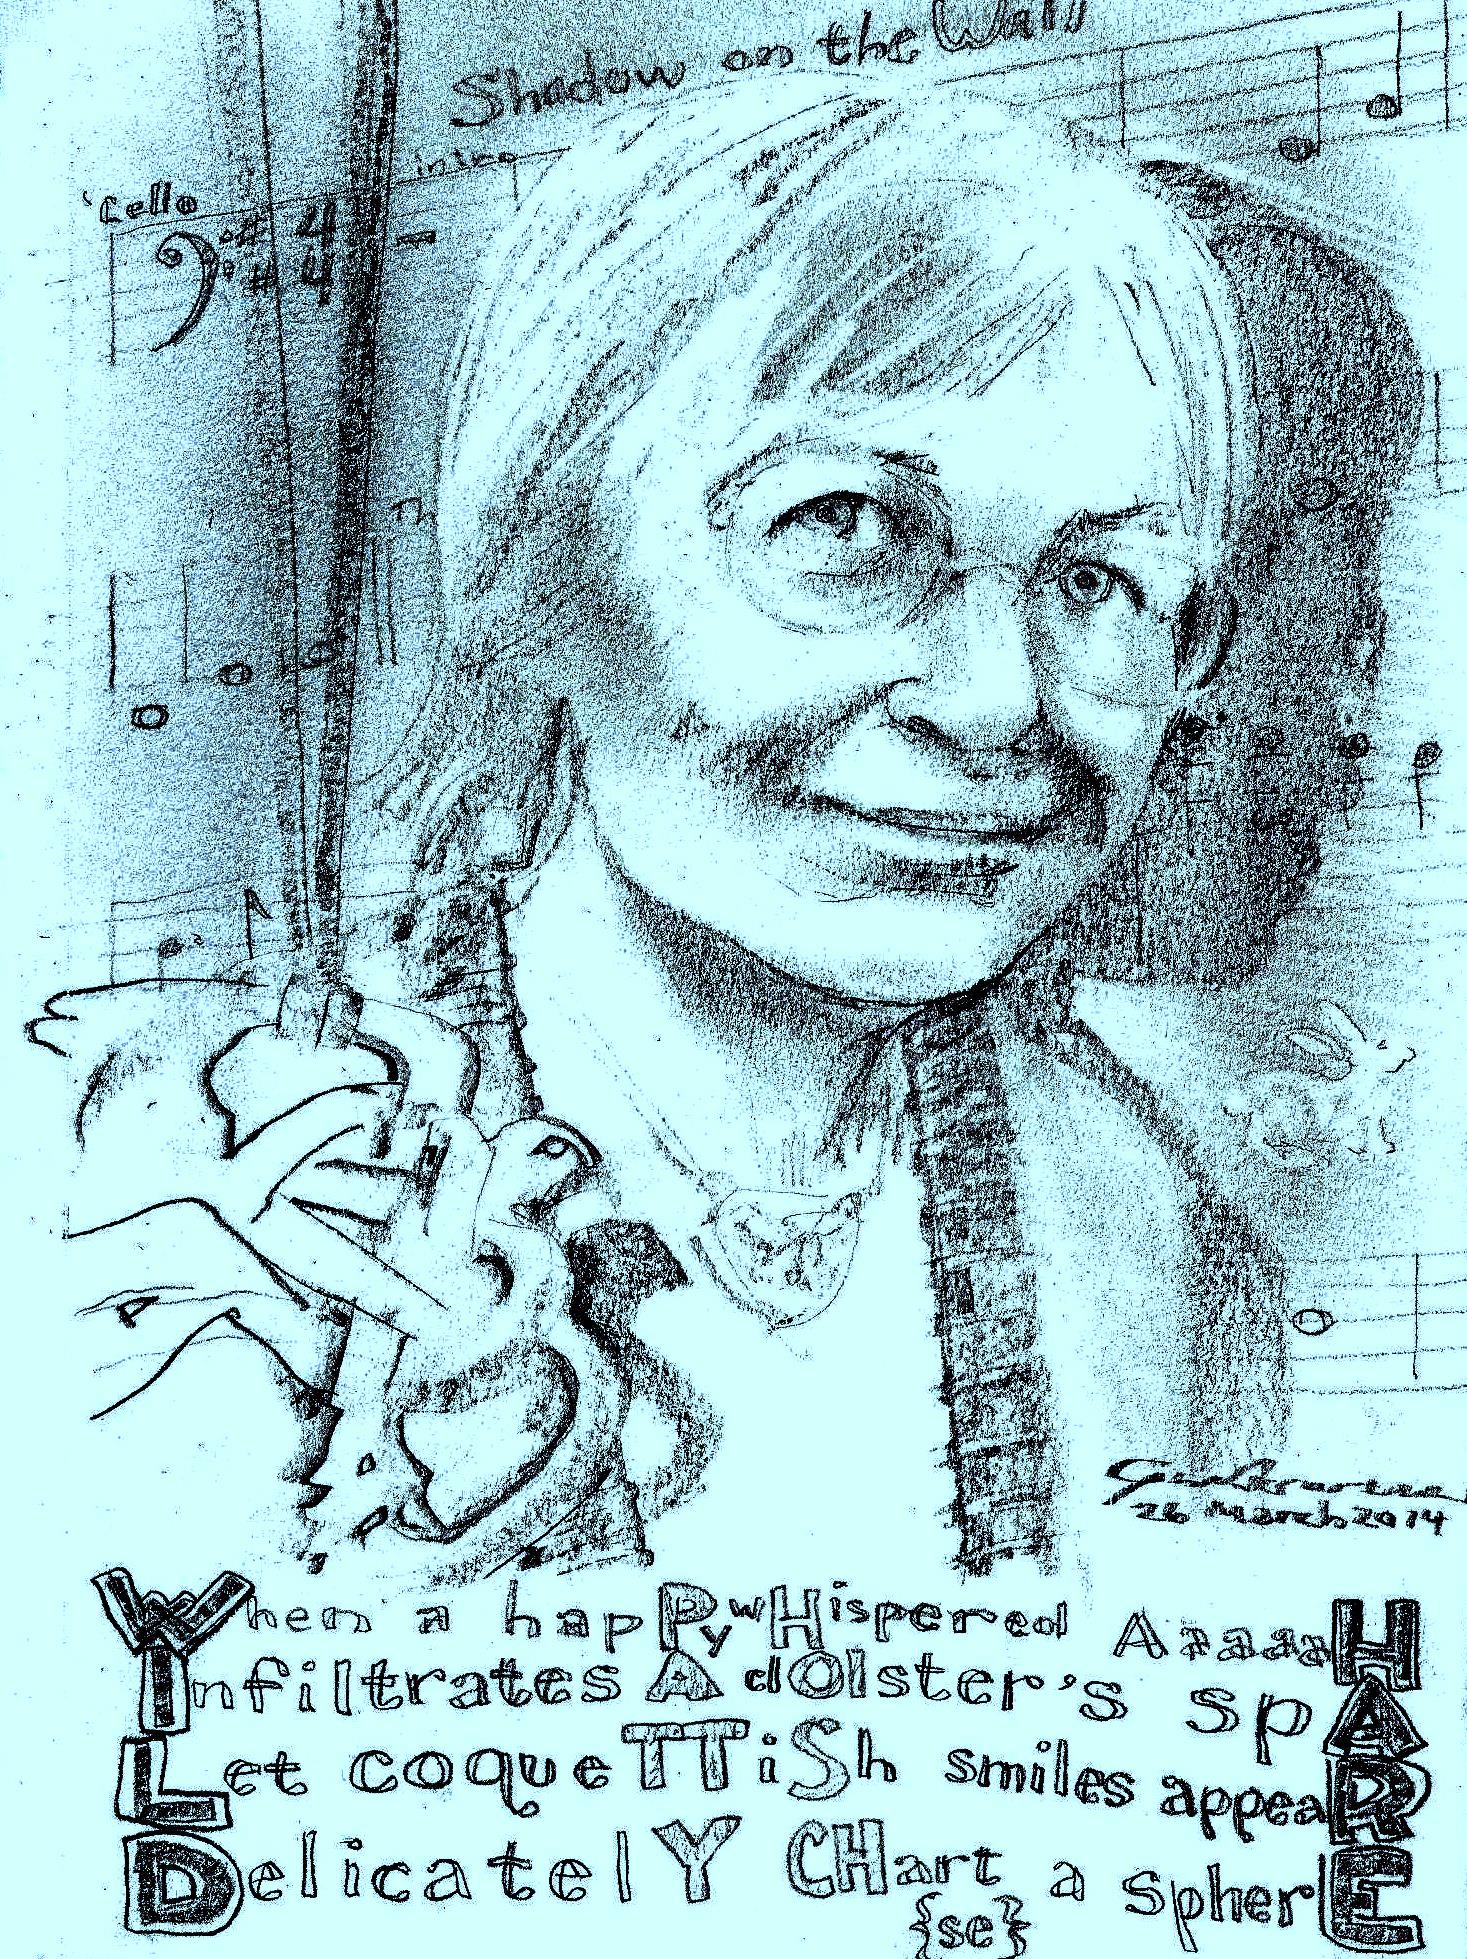 Shadow on the Wall
intro
'Cello
4
4
26 March 2014
When a hapPy wHispered AaaaaH
Infiltrates A dOlster's spA
Let coqueTTiSh smiles appeaR
DelicatelY CHart a spherE
{se}